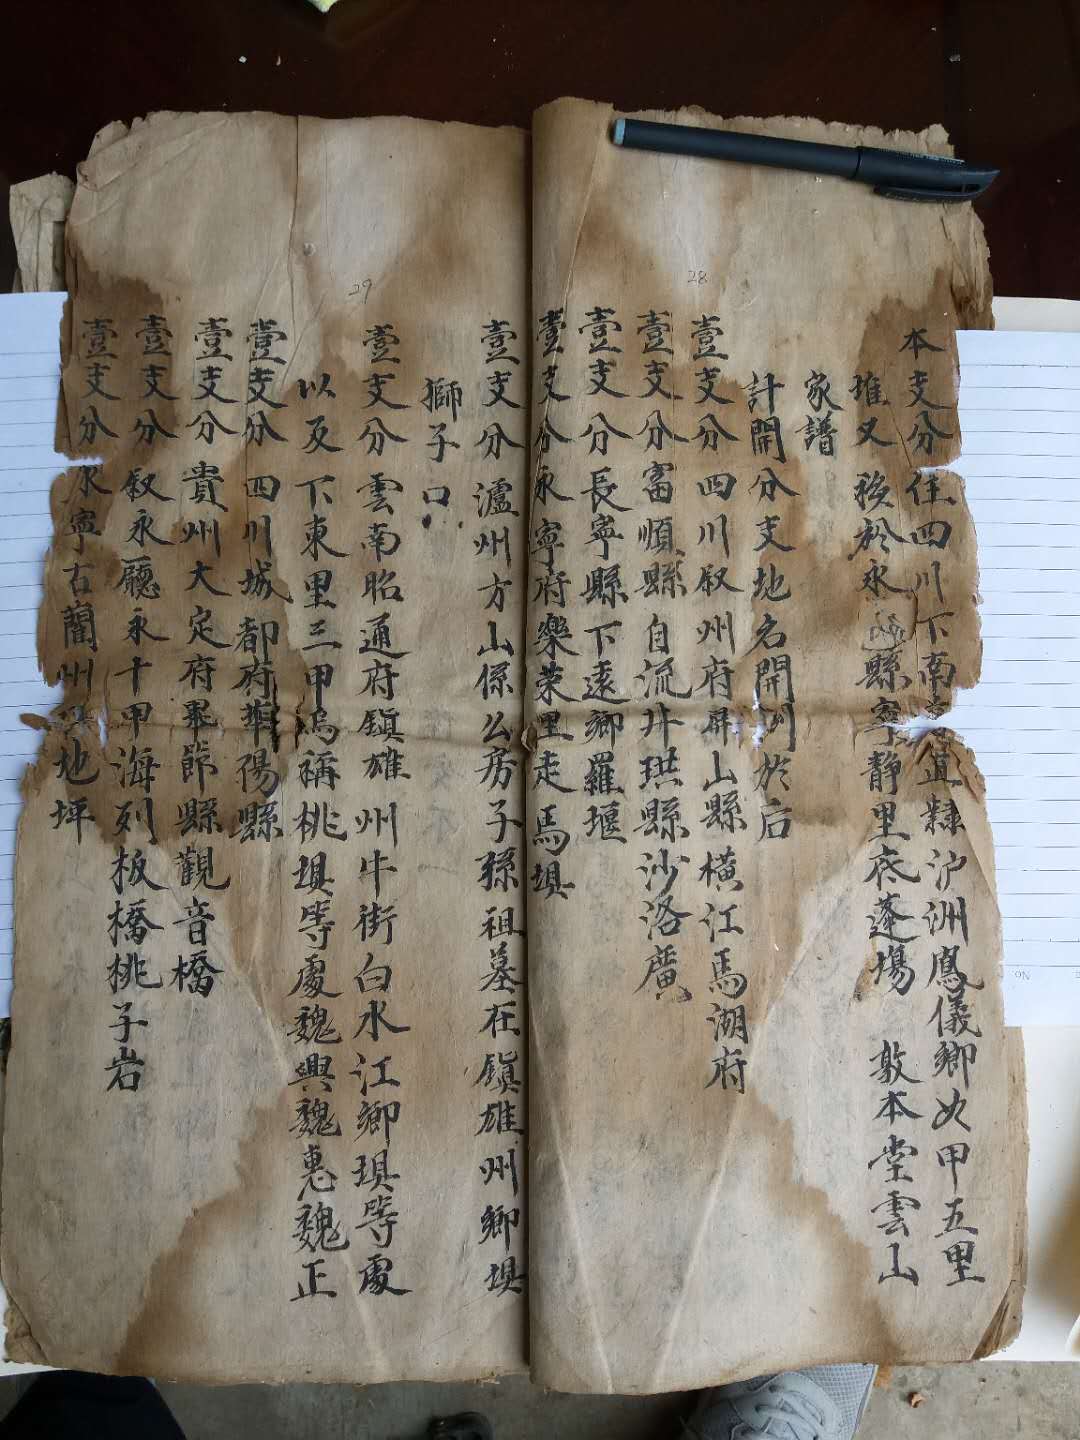 28
本支分住四川下南直隸沪洲鳳儀鄉乂甲五里
堆又移於永縣寧靜里底蓬塲 敦本堂雲山
家譜
計開分支地名開列於后
壹支分四川叙州府屏山縣橫江馬湖府
壹支分富順縣自流井珙縣沙洛廣
壹支分長寧縣下遠鄉羅堰
壹支分永寧府樂荣里走馬垻
29
壹支分瀘州方山係么房子孫祖墓在鎮雄州鄉垻
獅子口
壹支分雲南昭通府鎮雄州牛街白水江鄉垻等處
以及下東里三甲烏稱桃垻等處魏興魏惠魏正
壹支分四川城都府華陽縣
壹支分貴州大定府畢節縣觀音橋
壹支分叙永廳永十甲海列板橋桃子岩
壹支分永寧古藺州地坪